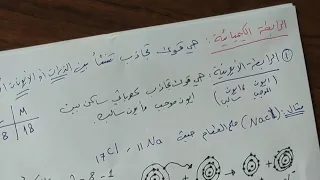 الرابطة الكيميائية: هي قوى تجاذب تنشأ بين الذرات أو الأيونات
① الرابطة الأيونية: هي قوة تجاذب كهربائي ساكن بين
(أيون موجب وأيون سالب) أيون موجب وأيون سالب
مثال: (NaCl) ملح الطعام حيث 11Na ، 17Cl
L M
8 18
2-8-1